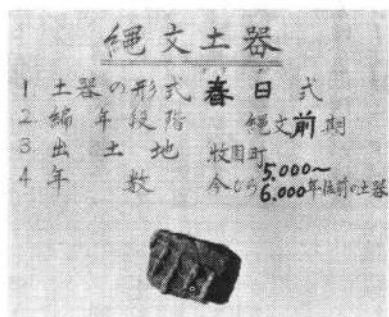 縄文土器
1 土器の形式 春日式
2 編年段階 縄文前期
3 出土地 牧園町
4 年数 今から5.000〜6.000年位前の土器